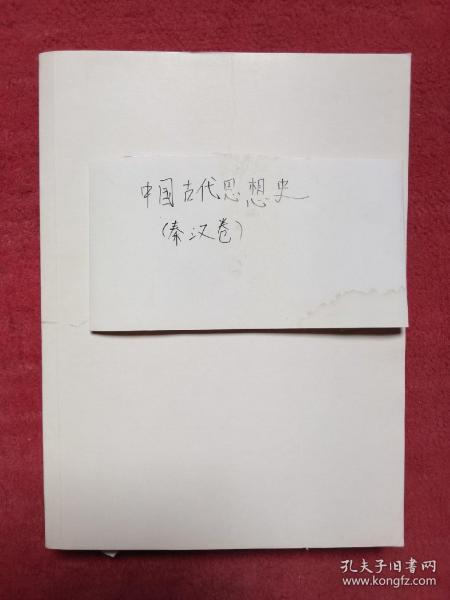 中国古代思想史
（秦汉卷）
孔夫子旧书网
www.kongfz.com